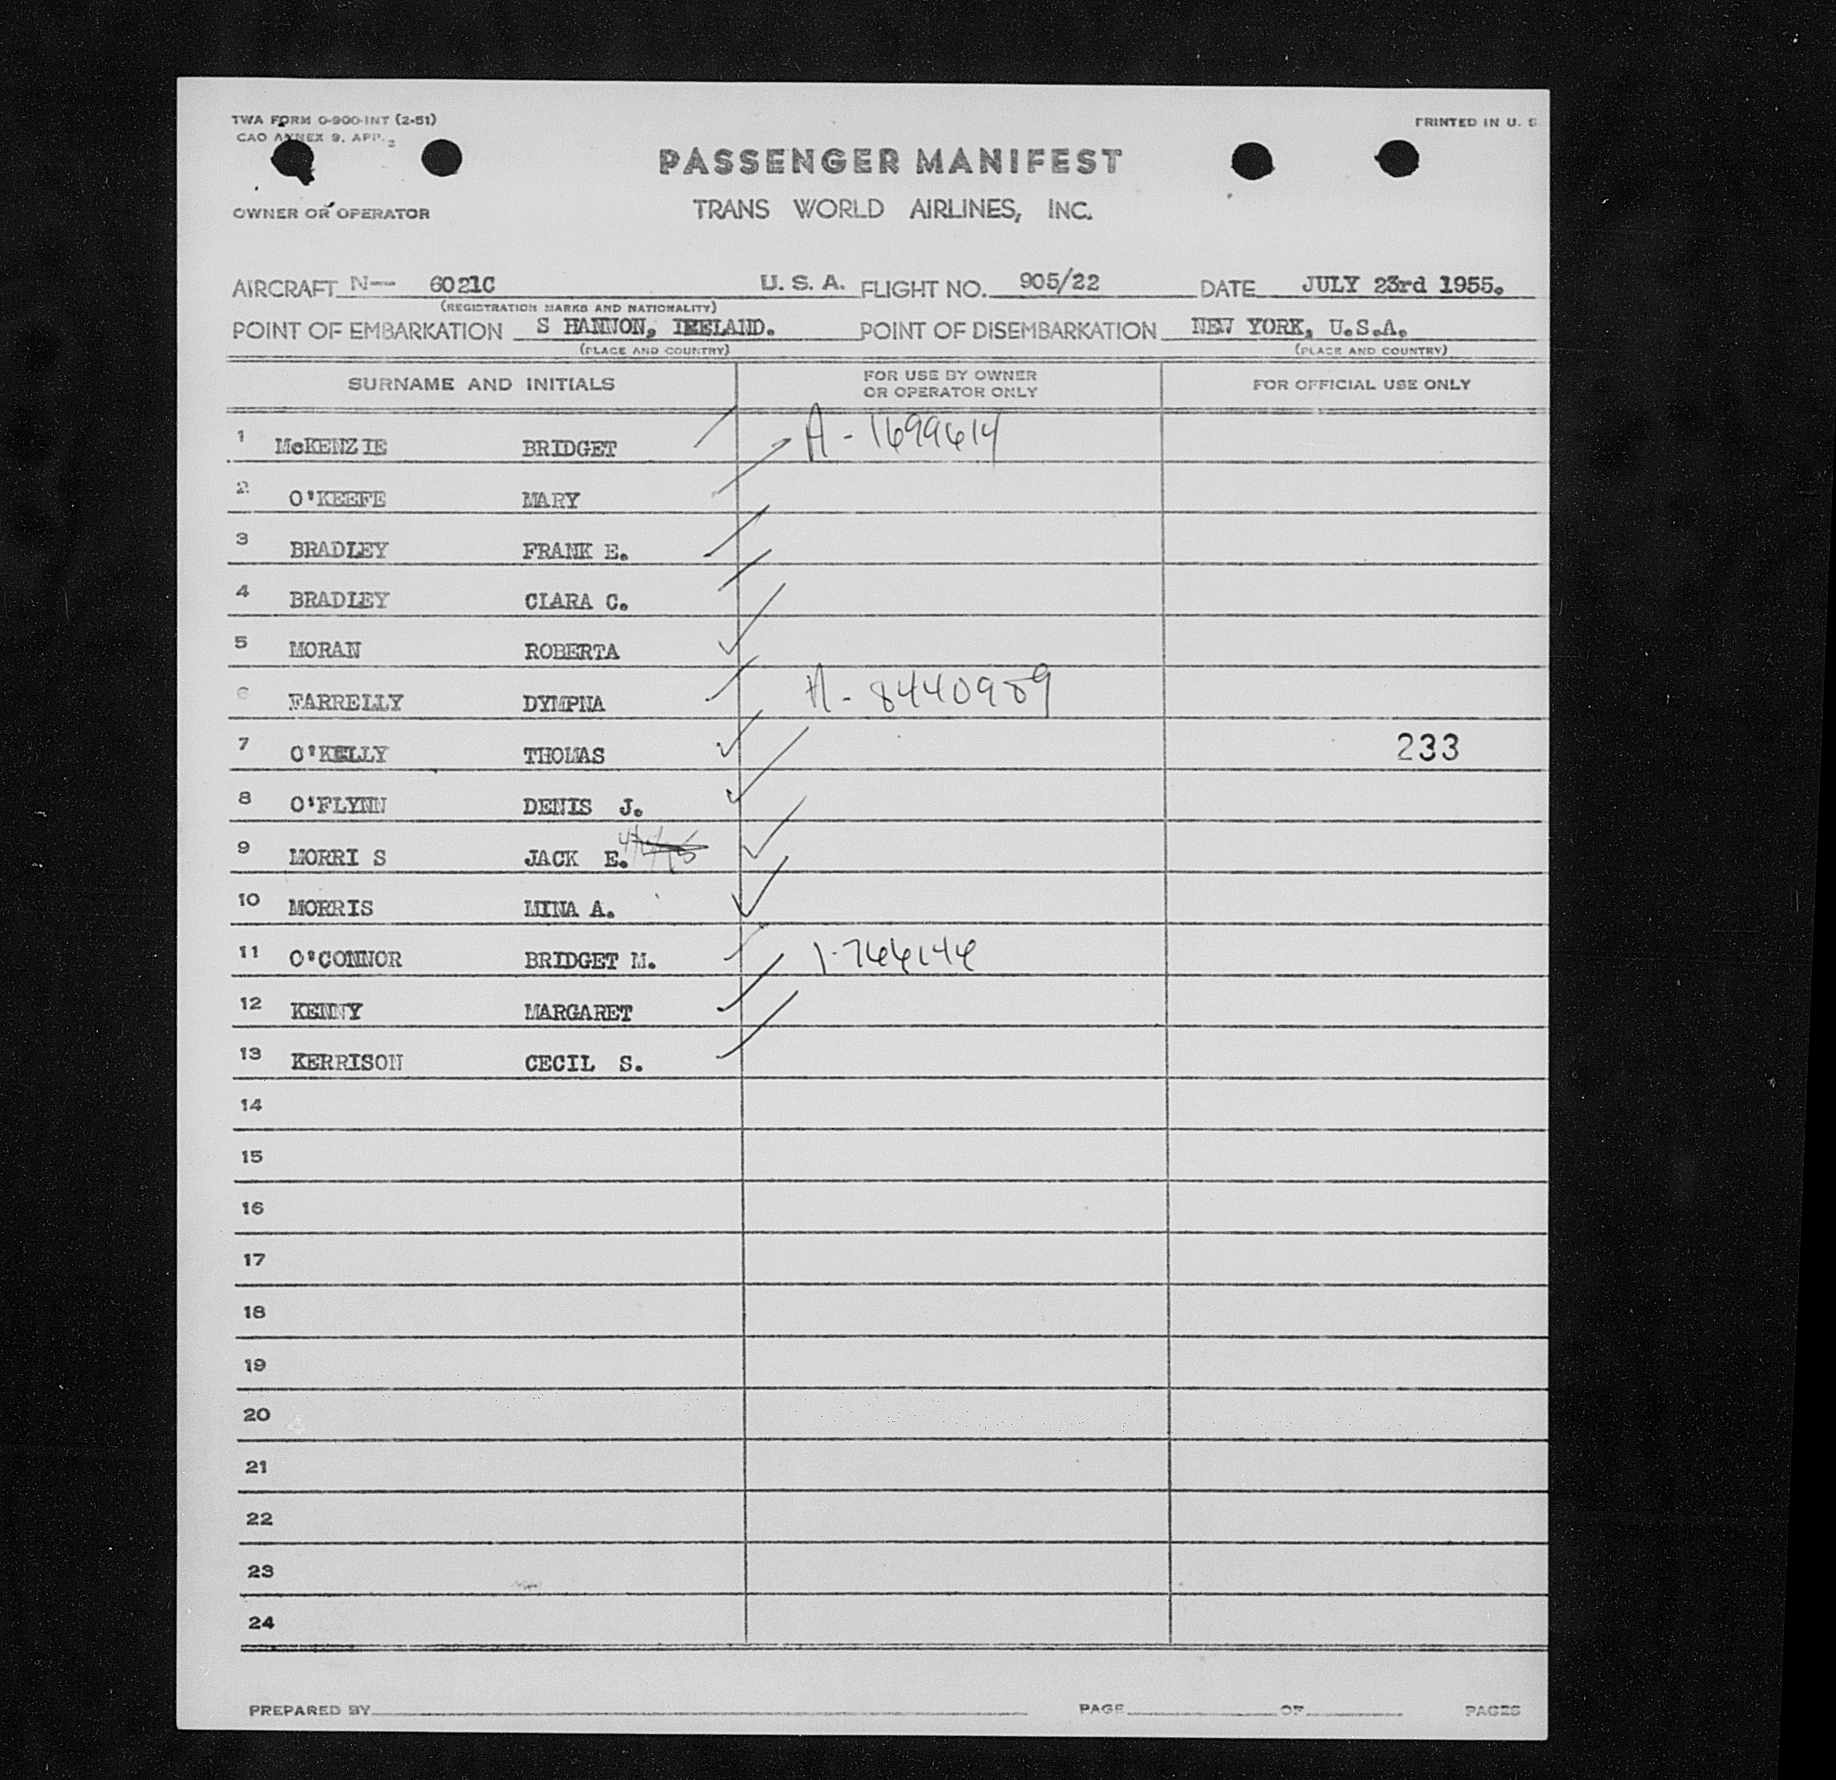 TWA FORM O-900-INT (2-51)
PRINTED IN U. S
CAO ANNEX 9, APP. 2
PASSENGER MANIFEST
OWNER OR OPERATOR
TRANS WORLD AIRLINES, INC.
AIRCRAFT N— 6021C U. S. A. FLIGHT NO. 905/22 DATE JULY 23rd 1955.
(REGISTRATION MARKS AND NATIONALITY)
POINT OF EMBARKATION S HANNON, IRELAND. POINT OF DISEMBARKATION NEW YORK, U.S.A.
(PLACE AND COUNTRY) (PLACE AND COUNTRY)
SURNAME AND INITIALS FOR USE BY OWNER OR OPERATOR ONLY FOR OFFICIAL USE ONLY
1 McKENZ IE BRIDGET A-1699614
2 O'KEEFE MARY
3 BRADLEY FRANK E.
4 BRADLEY CLARA C.
5 MORAN ROBERTA
6 FARRELLY DYMPNA A-8440989
7 O'KELLY THOMAS 233
8 O'FLYNN DENIS J.
9 MORRI S JACK E.
10 MORRIS MINA A.
11 O'CONNOR BRIDGET M. 1-766146
12 KENNY MARGARET
13 KERRISON CECIL S.
14
15
16
17
18
19
20
21
22
23
24
PREPARED BY PAGE OF PAGES